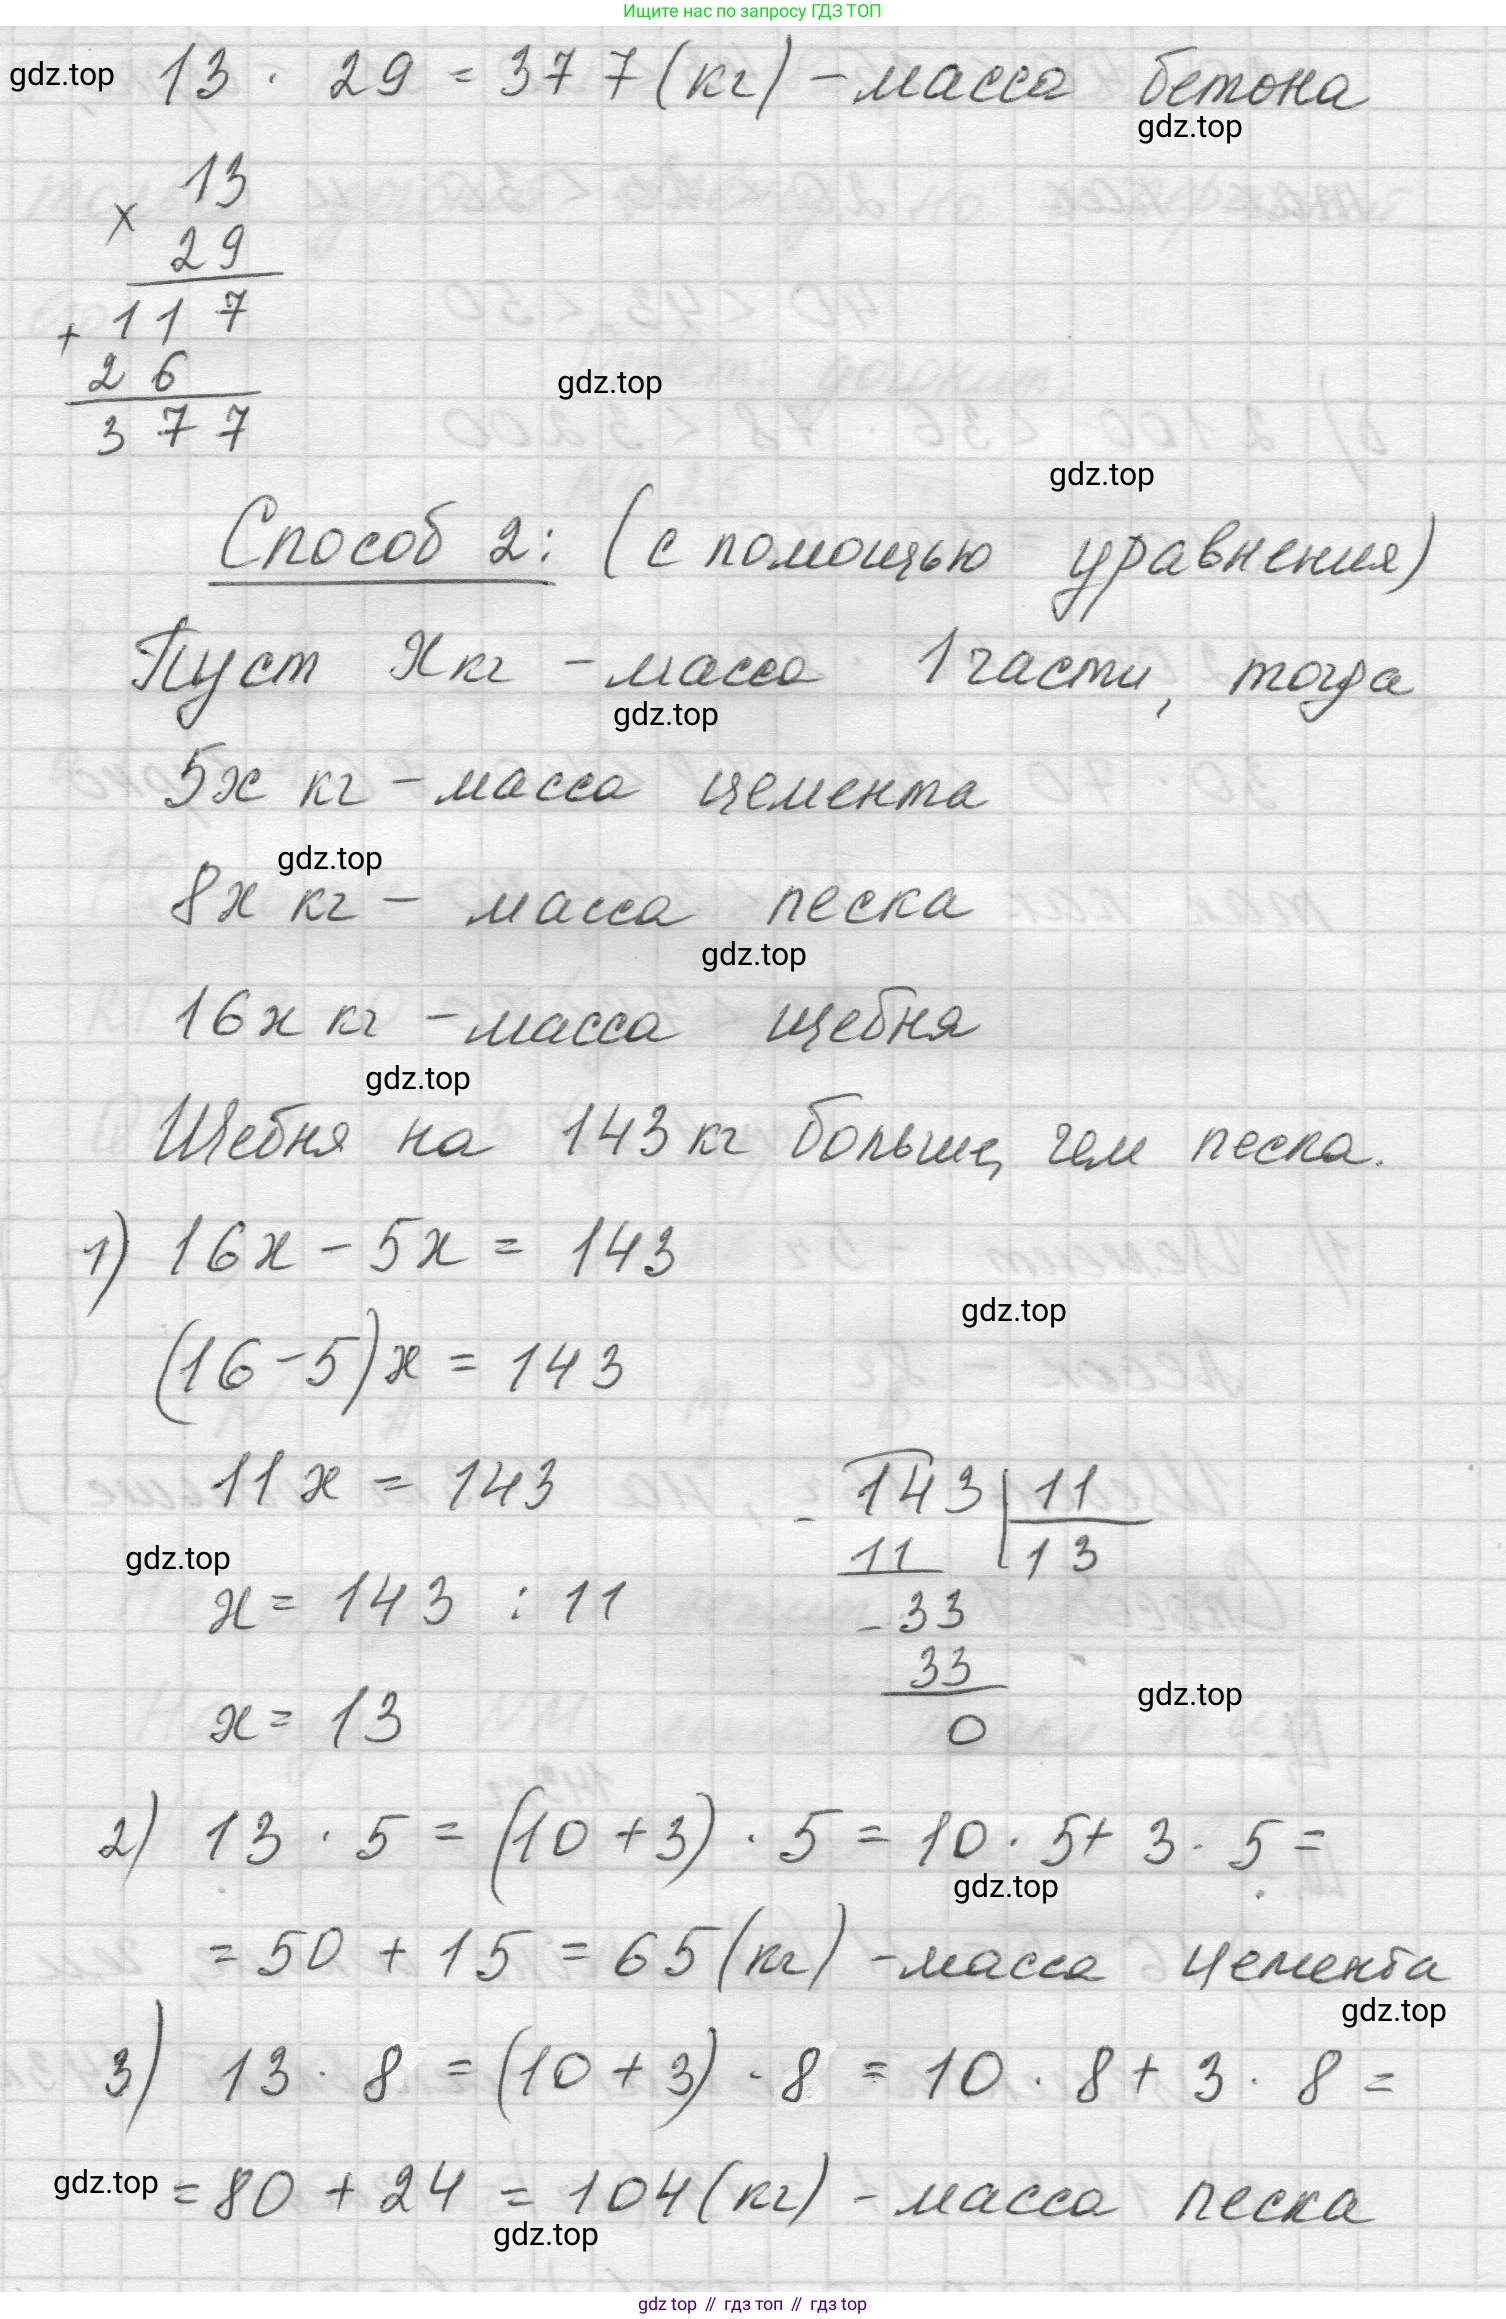 Ищите нас по запросу ГДЗ ТОП
gdz.top 13 · 29 = 377 (кг) – масса бетона
gdz.top
13
×
29
117
+
26
gdz.top
377
gdz.top
Способ 2: (с помощью уравнения)
Пуст x кг – масса 1 части, тогда
gdz.top
5x кг – масса цемента
gdz.top
8x кг – масса песка
gdz.top
16x кг – масса щебня
gdz.top
Щебня на 143 кг больше, чем песка.
1) 16x – 5x = 143
gdz.top
(16 – 5)x = 143
11x = 143
- 143 | 11
gdz.top
11 13
x = 143 : 11
- 33
33
gdz.top
x = 13
0
2) 13 · 5 = (10 + 3) · 5 = 10 · 5 + 3 · 5 =
gdz.top
= 50 + 15 = 65 (кг) – масса цемента
gdz.top
3) 13 · 8 = (10 + 3) · 8 = 10 · 8 + 3 · 8 =
gdz.top = 80 + 24 = 104 (кг) – масса песка
gdz.top
gdz top // гдз топ // гдз top